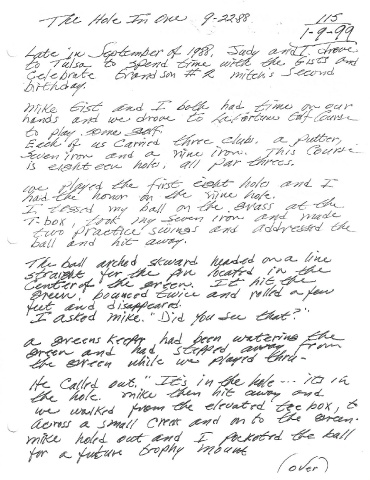 The Hole In One 9-22-88 115
1-9-99
Late in September of 1988, Judy and I drove
to Tulsa to spend time with the Gists and
Celebrate Grandson #2 Mitch's Second
birthday.
Mike Gist and I both had time on our
hands and we drove to LaFortune Golf Course
to play some golf.
Each of us carried three clubs, a putter,
seven iron and a nine iron. This course
is eighteen holes, all par threes.
we played the first eight holes and I
had the honor on the nine hole.
I teed my ball on the grass at the
T-box, took my seven iron and made
two practice swings and addressed the
ball and hit away.
The ball arched skyward headed on a line
straight for the pin located in the
Center of the green. It hit the
green, bounced twice and rolled a few
feet and disappeared.
I asked Mike. "Did you see that?"
a greens keeper had been watering the
green and had stepped away from
the green while we played thru-
He called out. "It's in the hole --- it's in
the hole. Mike then hit away and
we walked from the elevated tee box,
across a small creek and on to the green.
Mike holed out and I pocketed the ball
for a future trophy mount
(over)